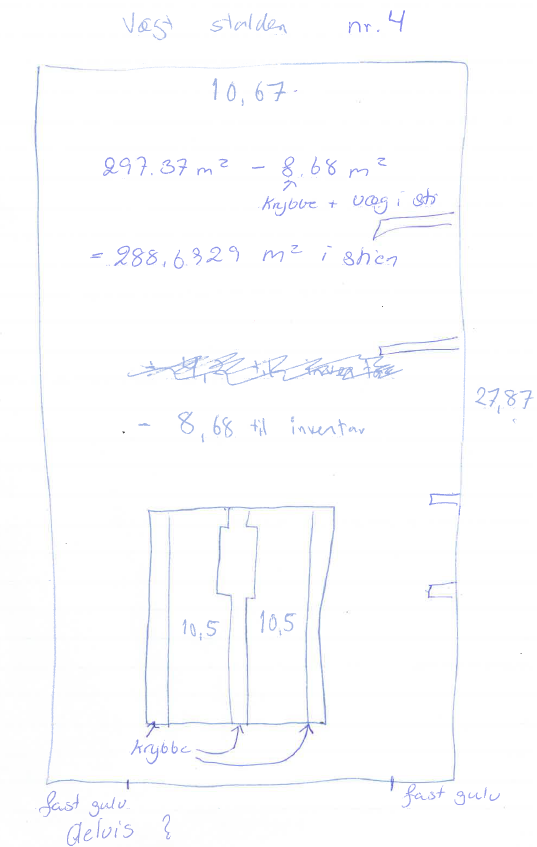 Vægt stalden nr. 4
10,67.
297.37 m² - 8.68 m²
krybbe + væg i sti
= 288,6329 m² i stien
27,87
- 8,68 til inventar
10,5 10,5
krybbe
fast gulv fast gulv
delvis ?